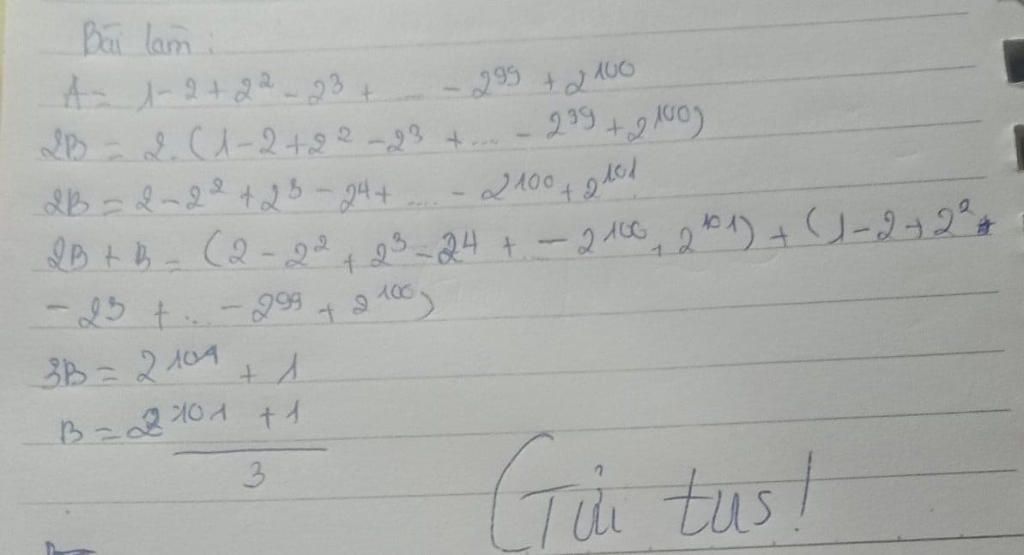 Bài làm:
A = 1 - 2 + 2² - 2³ + .... - 2⁹⁹ + 2¹⁰⁰
2B = 2.(1 - 2 + 2² - 2³ + .... - 2⁹⁹ + 2¹⁰⁰)
2B = 2 - 2² + 2³ - 2⁴ + .... - 2¹⁰⁰ + 2¹⁰¹
2B + B = (2 - 2² + 2³ - 2⁴ + - 2¹⁰⁰ + 2¹⁰¹) + (1 - 2 + 2² +
- 2³ + ... - 2⁹⁹ + 2¹⁰⁰)
3B = 2¹⁰¹ + 1
B = 2¹⁰¹ + 1
3
(Gửi tus!